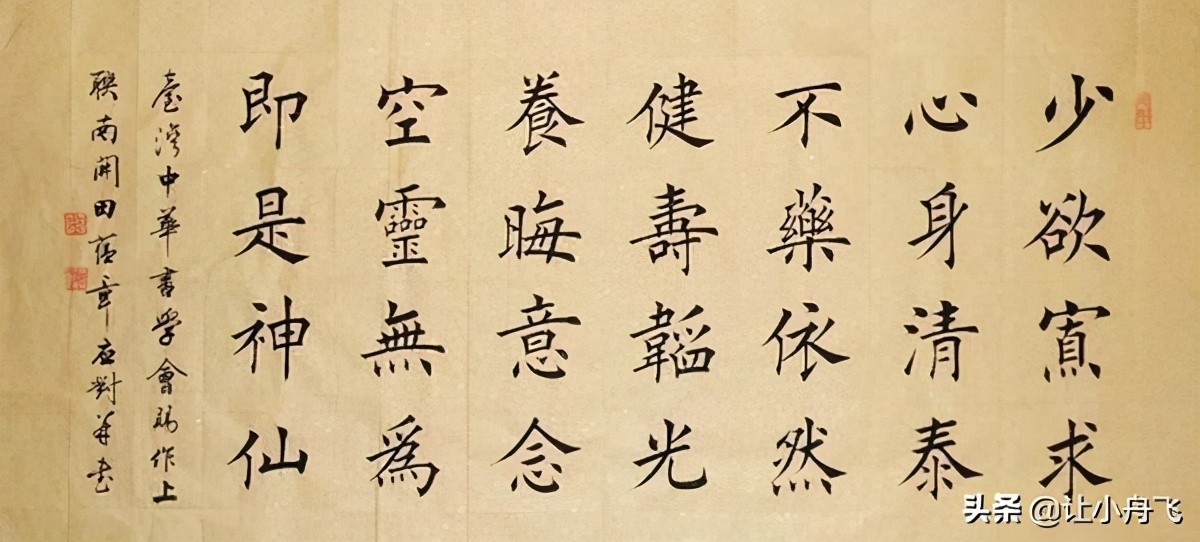 少欲寡求
心身清泰
不藥依然
健壽韜光
養晦意念
空靈無為
即是神仙
臺灣中華書學會賜作上
聯南開田蘊章應對並書
头条 @让小舟飞